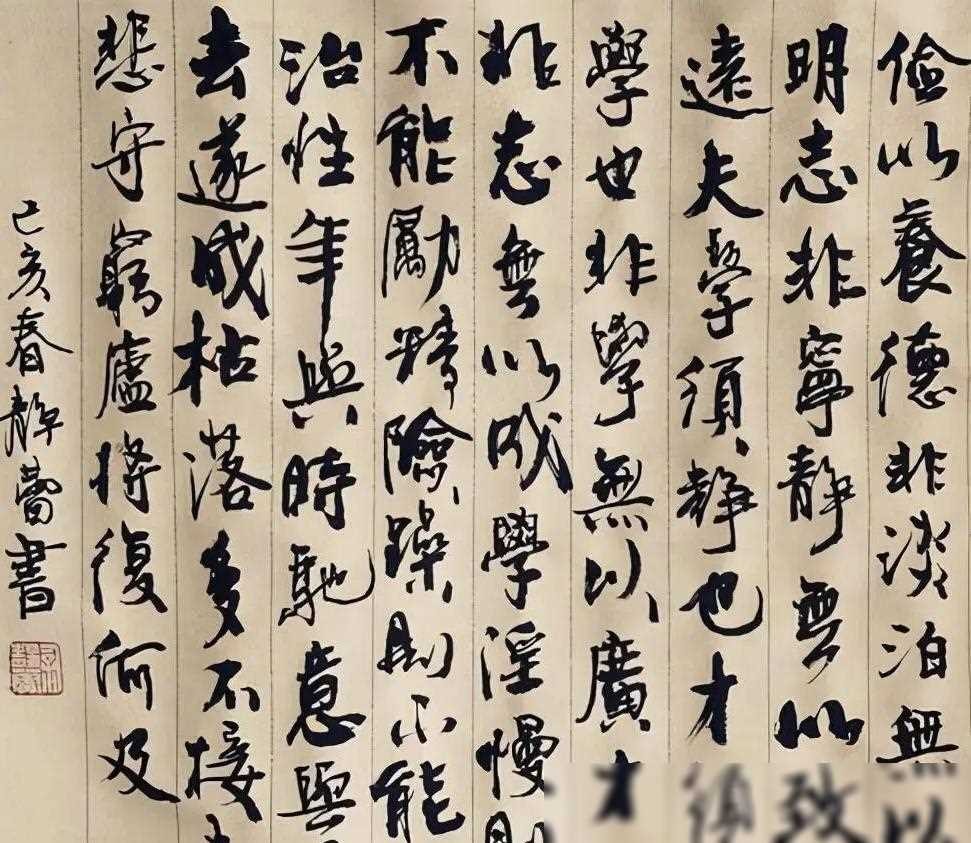 儉以養德非淡泊無以
明志非寧靜無以致
遠夫學須靜也才須
學也非學無以廣才
非志無以成學淫慢則
不能勵精險躁則不能
治性年與時馳意與
去遂成枯落多不接
悲守窮廬將復何及
己亥春靜蕾書